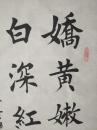 嬌黃嫩
白深紅